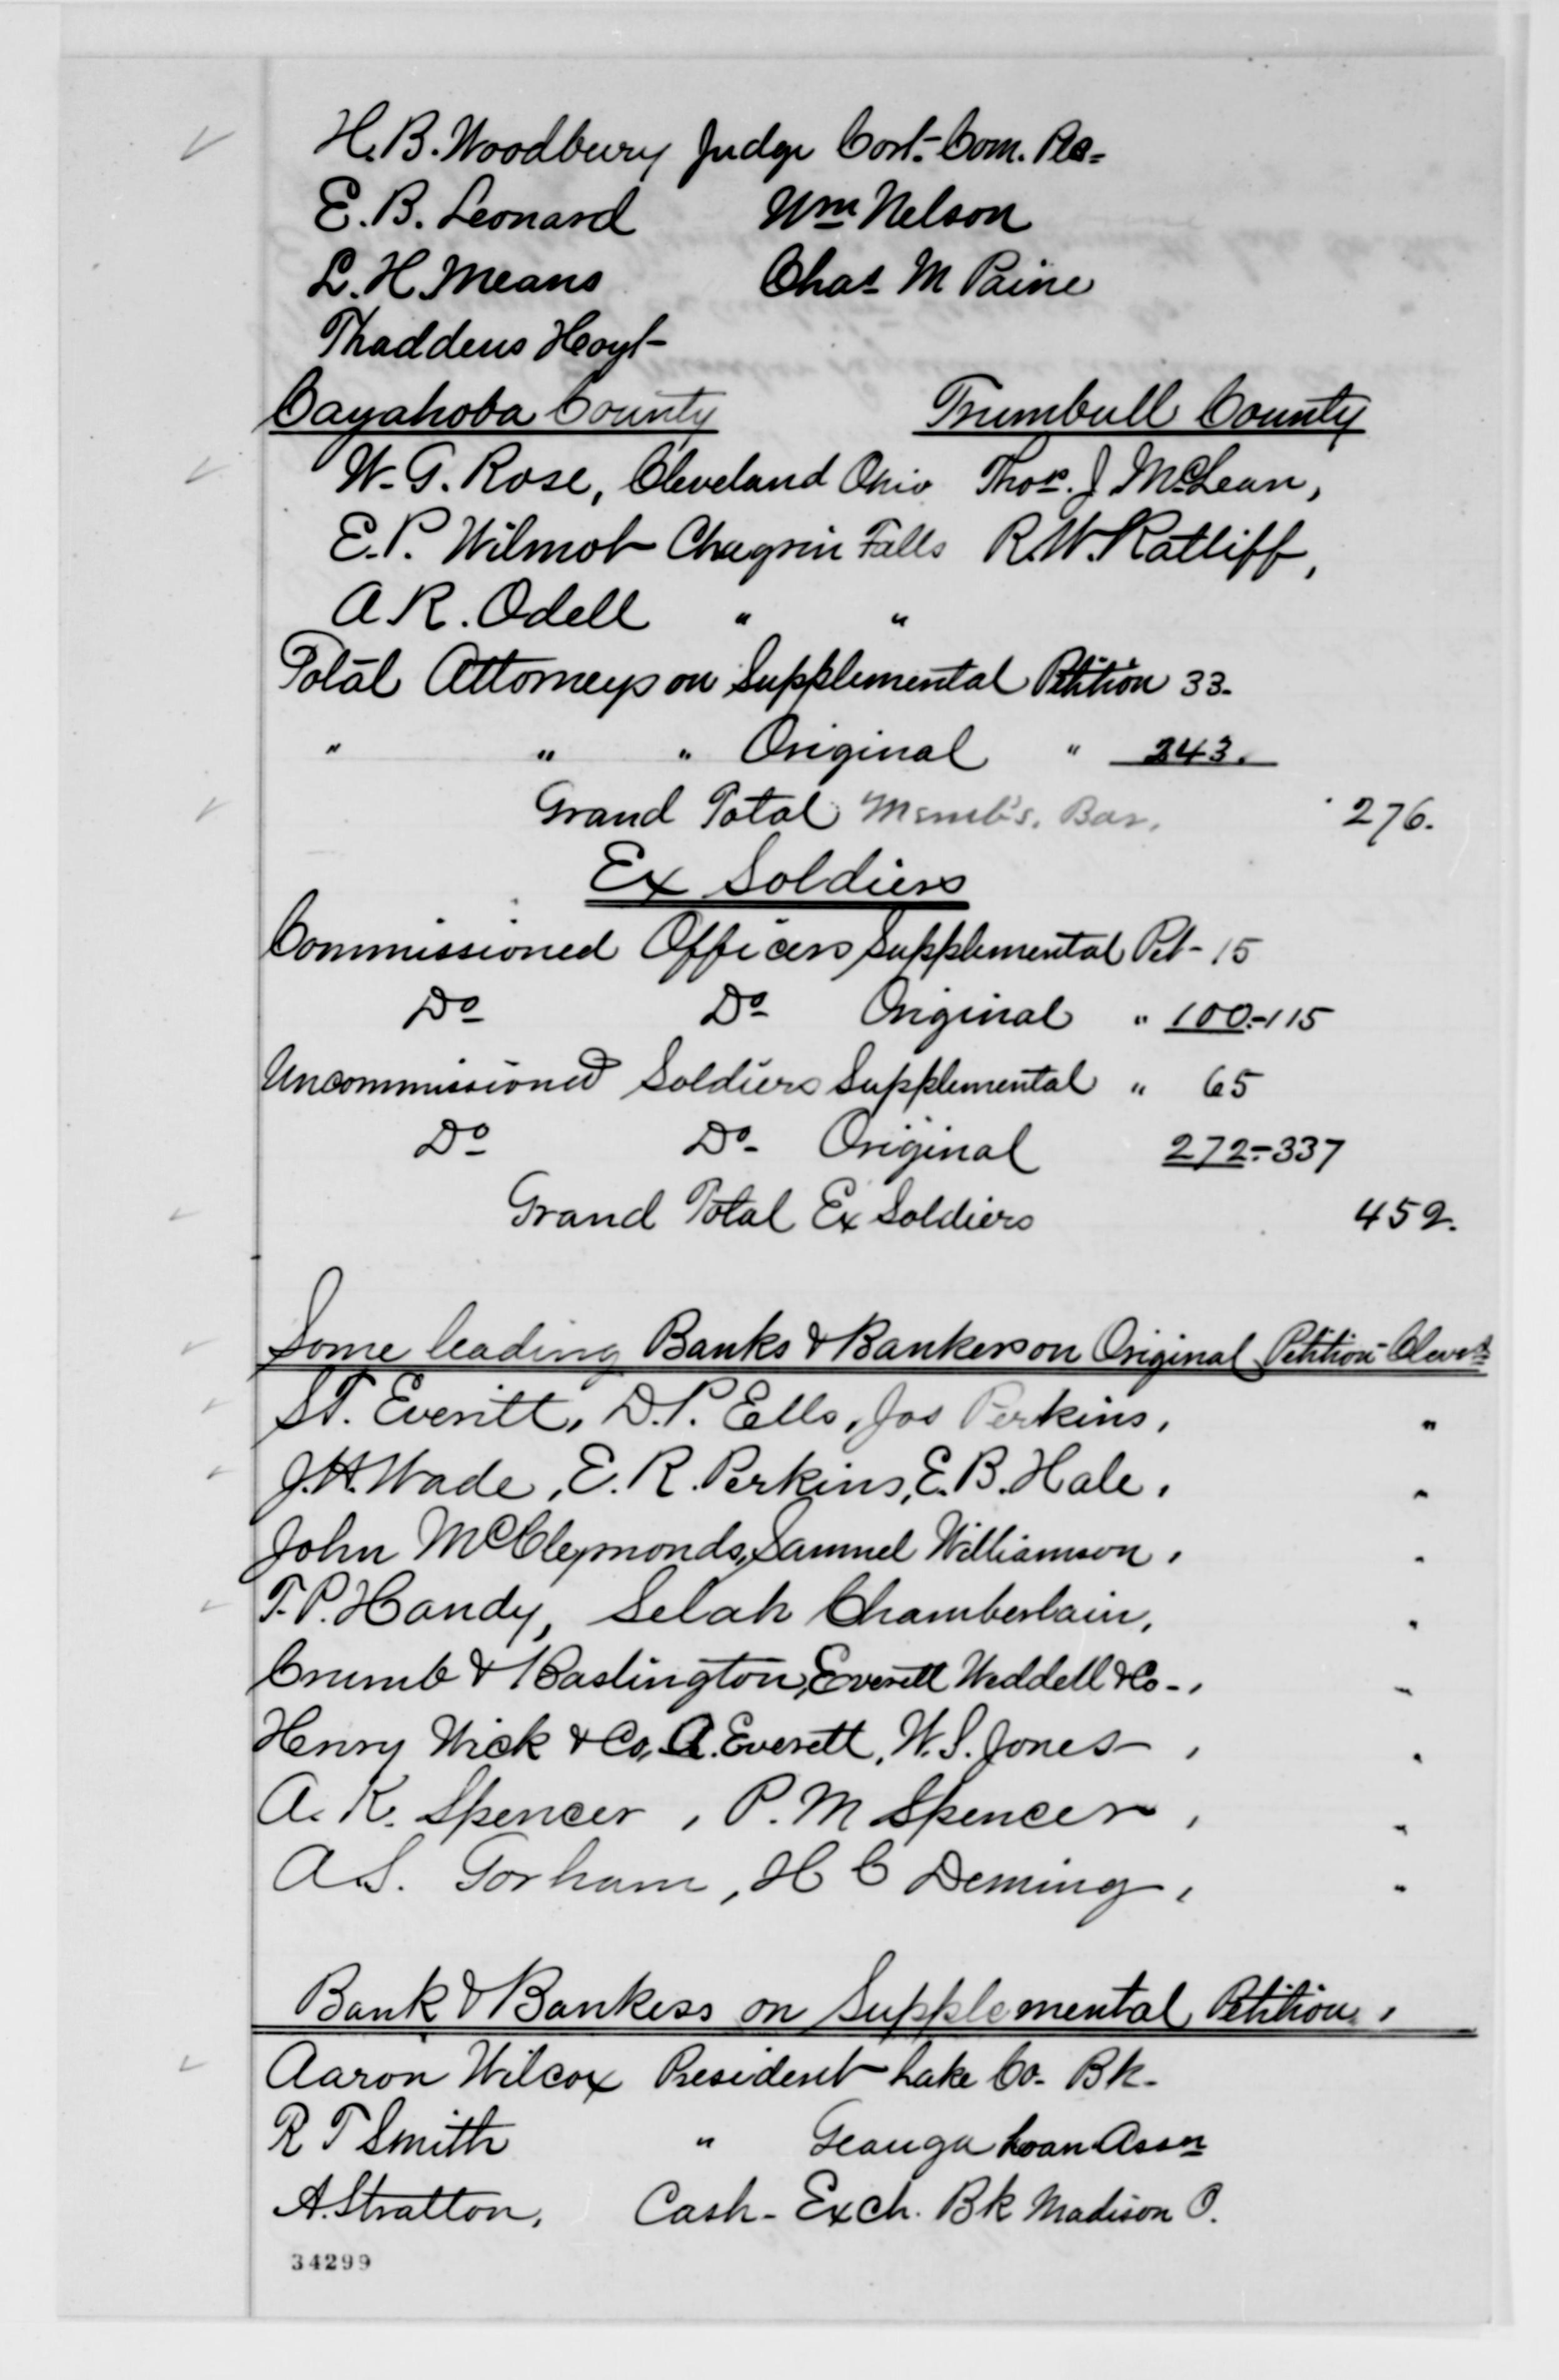 H. B. Woodbury Judge Cort- Com. Pls-
E. B. Leonard Wm Nelson
L. H. Means Chas M Paine
Thaddeus Hoyt-
Cayahoba County Trumbull County
W. G. Rose, Cleveland Ohio Thos. J McLean,
E. P. Wilmot Chagrin Falls R. W. Ratliff,
A R. Odell " "
Total Attorneys on Supplemental Petition 33.
" " " Original " 243.
Grand Total Memb's. Bar. 276.
Ex Soldiers
Commissioned Officers Supplemental Pet- 15
Do Do Original " 100-115
Uncommissioned Soldiers Supplemental " 65
Do Do- Original 272-337
Grand Total Ex Soldiers 452.
Some leading Banks & Bankers on Original Petition- Cleved
S T. Everitt, D. P. Ells, Jos Perkins, "
J. H. Wade, E. R. Perkins, E. B. Hale, "
John McClymonds, Samuel Williamson, "
T. P. Handy, Selah Chamberlain, "
Crumb & Baslington, Everett Weddell & Co-, "
Henry Wick & Co, A. Everett, W. S. Jones-, "
A. K. Spencer, P. M Spencer, "
A S. Gorham, H C Deming, "
Bank & Bankers on Supplemental Petition,
Aaron Wilcox President Lake Co- Bk-
R T Smith " Geauga Loan Assn
A. Stratton, Cash- Exch. Bk Madison O.
34299